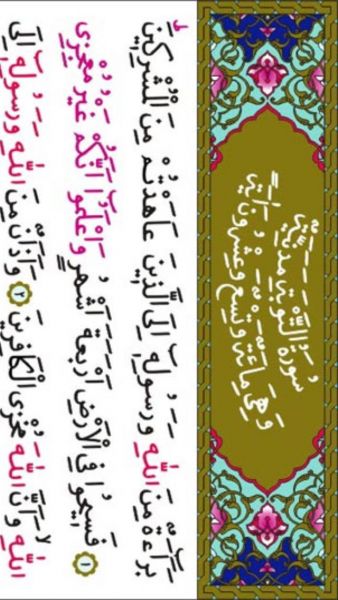 سُورَةُ التَّوْبَةِ مَدَنِيَّةٌ
وَهِىَ مِائَةٌ وَتِسْعٌ وَعِشْرُونَ اٰيَةً
بَرَٓاءَةٌ مِنَ اللّٰهِ وَرَسُولِهٖٓ اِلَى الَّذٖينَ عَاهَدْتُمْ مِنَ الْمُشْرِكٖينَ
﴿١﴾ فَسٖيحُوا فِى الْاَرْضِ اَرْبَعَةَ اَشْهُرٍ وَاعْلَمُٓوا اَنَّكُمْ غَيْرُ مُعْجِزِى
اللّٰهِ وَاَنَّ اللّٰهَ مُخْزِى الْكَافِرٖينَ ﴿٢﴾ وَاَذَانٌ مِنَ اللّٰهِ وَرَسُولِهٖٓ اِلَى